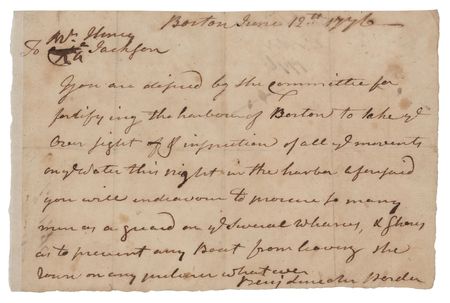 Boston June 12th 1776
Mr. Henry
To Jackson
You are desired by the committee for
fortifying the harbour of Boston to take ye
Over sight of & inspection of all ye movents
on ye Water this night in the harbor aforesaid
you will endeavour to procure so many
men as a guard on ye Several Wharves, & Shores
as to prevent any Boat from leaving the
Town on any pretence what ever
Benj Lincoln